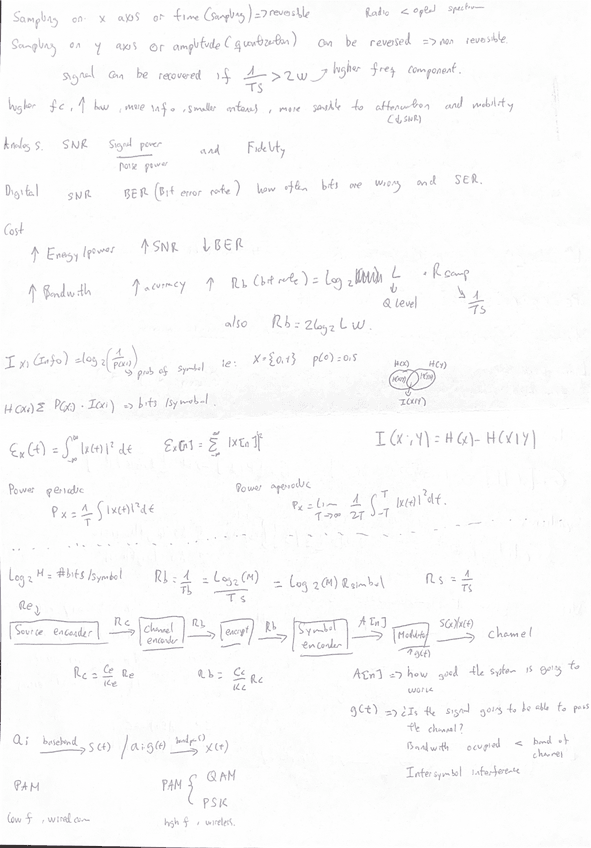 Sampling on x axis or time (sampling) => reversible
Radio < optal spectrum
Sampling on y axis or amplitude (quantization) can be reversed => non reversible.
signal can be recovered if 1/Ts > 2W → higher freq component.
higher fc, ↑ bw, more info, smaller antennas, more sensible to attenuation and mobility
(↓SNR)
Analog s. SNR Signal power / noise power and Fidelity
Digital SNR BER (Bit error rate) how often bits are wrong and SER.
Cost
↑ Energy/power ↑ SNR ↓ BER
↑ Bandwith ↑ accuracy ↑ Rb (bit rate) = log2 L · Rsamp
Q level 1/Ts
also Rb = 2log2 L W.
I(xi) (Info) = log2(1/p(xi)) → prob of symbol ie: X={0,1} p(0)=0,5
H(X) H(Y)
H(X|Y) H(Y|X)
I(X;Y)
H(Xi) Σ P(Xi) · I(xi) => bits /symbol.
Ex(t) = ∫ |x(t)|² dt Ex[n] = Σ |x[n]|² I(X;Y) = H(X) - H(X|Y)
Power periodic Power aperiodic
Px = 1/T ∫ |x(t)|² dt Px = lim T→∞ 1/2T ∫ -T T |x(t)|² dt.
Log2 M = #bits/symbol Rb = 1/Tb = Log2(M)/Ts = Log2(M) Rsimbol Rs = 1/Ts
Re
Source encoder Rc → channel encoder Rb → encrypt Rb → Symbol encoder A[n] → Modulator S(t)/x(t) → channel
g(t)
Rc = Ce/Ke Re Rb = Cc/Kc Rc A[n] => how good the system is going to
work
g(t) => ¿Is the signal going to be able to pass
the channel?
ai baseband → s(t) / ai g(t) bandpass → x(t)
Bandwith ocupied < band of
channel
Intersymbol interference
PAM PAM { QAM
PSK
low f, wired com high f, wireless.